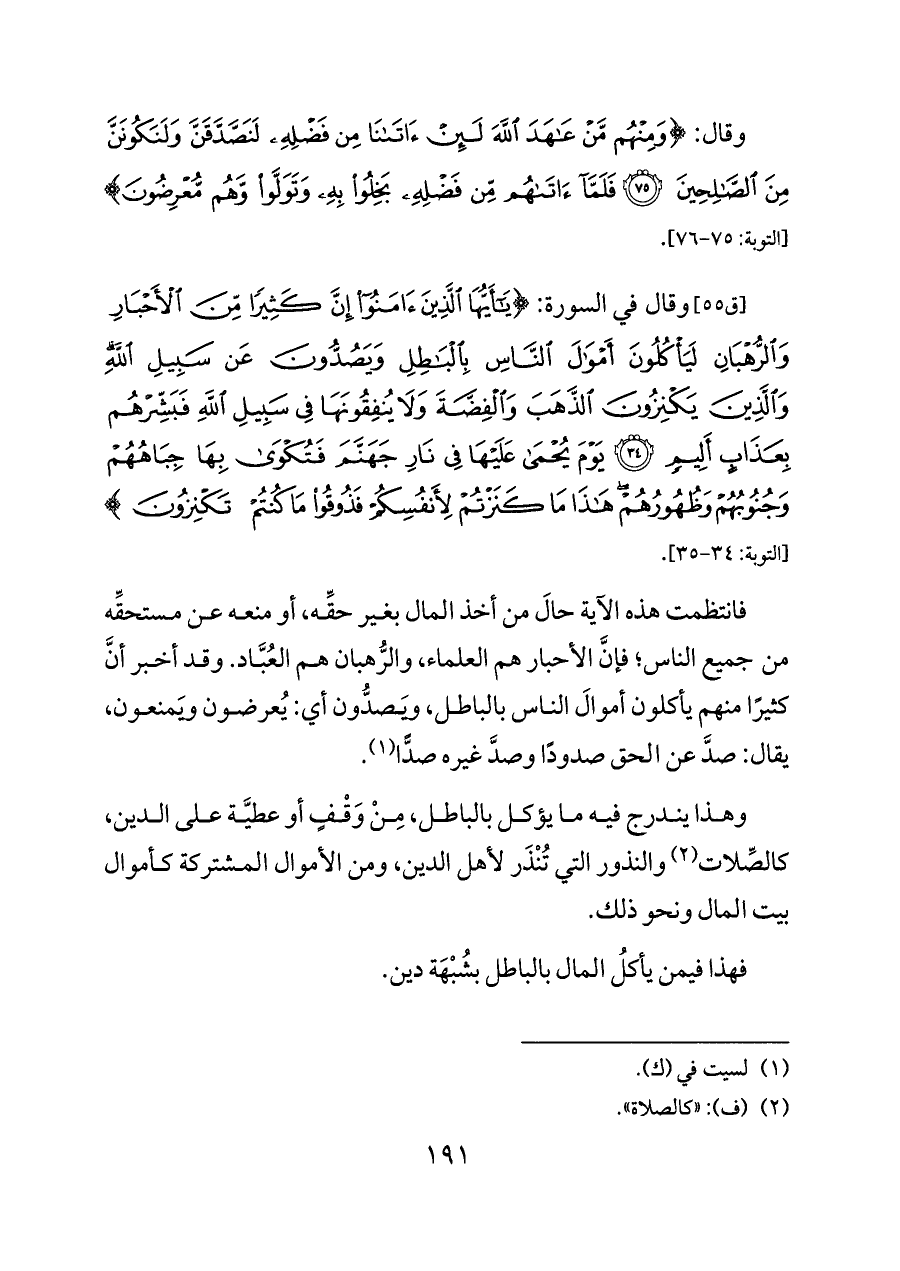 وقال: ﴿وَمِنْهُم مَّنْ عَٰهَدَ ٱللَّهَ لَئِنْ ءَاتَىٰنَا مِن فَضْلِهِۦ لَنَصَّدَّقَنَّ وَلَنَكُونَنَّ
مِنَ ٱلصَّٰلِحِينَ ٧٥ فَلَمَّآ ءَاتَىٰهُم مِّن فَضْلِهِۦ بَخِلُوا۟ بِهِۦ وَتَوَلَّوا۟ وَّهُم مُّعْرِضُونَ﴾
[التوبة: ٧٥-٧٦].
[ق٥٥] وقال في السورة: ﴿يَٰٓأَيُّهَا ٱلَّذِينَ ءَامَنُوٓا۟ إِنَّ كَثِيرًا مِّنَ ٱلْأَحْبَارِ
وَٱلرُّهْبَانِ لَيَأْكُلُونَ أَمْوَٰلَ ٱلنَّاسِ بِٱلْبَٰطِلِ وَيَصُدُّونَ عَن سَبِيلِ ٱللَّهِۗ
وَٱلَّذِينَ يَكْنِزُونَ ٱلذَّهَبَ وَٱلْفِضَّةَ وَلَا يُنفِقُونَهَا فِى سَبِيلِ ٱللَّهِ فَبَشِّرْهُم
بِعَذَابٍ أَلِيمٍ ٣٤ يَوْمَ يُحْمَىٰ عَلَيْهَا فِى نَارِ جَهَنَّمَ فَتُكْوَىٰ بِهَا جِبَاهُهُمْ
وَجُنُوبُهُمْ وَظُهُورُهُمْۖ هَٰذَا مَا كَنَزْتُمْ لِأَنفُسِكُمْ فَذُوقُوا۟ مَا كُنتُمْ تَكْنِزُونَ﴾
[التوبة: ٣٤-٣٥].
فانتظمت هذه الآية حالَ من أخذ المال بغير حقِّه، أو منعه عن مستحقِّه
من جميع الناس؛ فإنَّ الأحبار هم العلماء، والرُّهبان هم العُبَّاد. وقد أخبر أنَّ
كثيرًا منهم يأكلون أموالَ الناس بالباطل، ويَصدُّون أي: يُعرضون ويَمنعون،
يقال: صدَّ عن الحق صدودًا وصدَّ غيره صدًّا(١).
وهذا يندرج فيه ما يؤكل بالباطل، مِنْ وَقْفٍ أو عطيَّة على الدين،
كالصِّلات(٢) والنذور التي تُنْذَر لأهل الدين، ومن الأموال المشتركة كأموال
بيت المال ونحو ذلك.
فهذا فيمن يأكلُ المال بالباطل بشُبْهَة دين.
(١) لسيت في (ك).
(٢) (ف): «كالصلاة».
١٩١